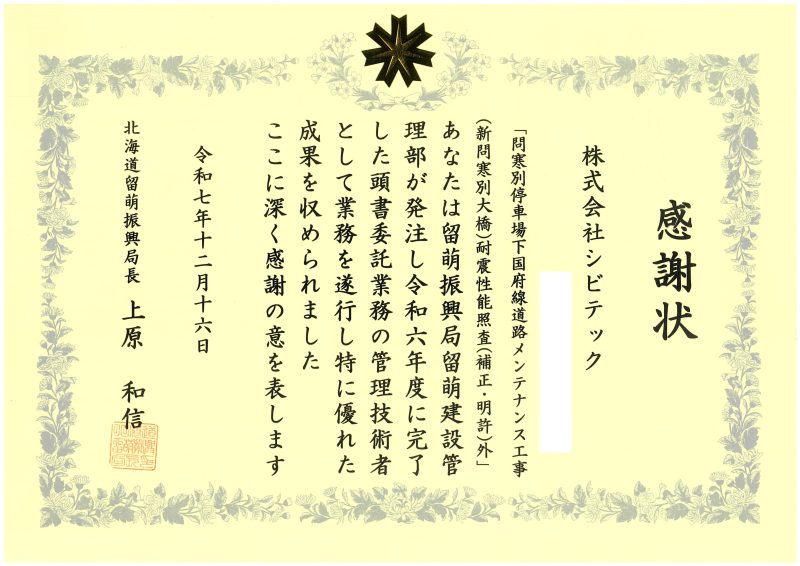 感謝状
株式会社シビテック
「問寒別停車場下国府線道路メンテナンス工事
(新問寒別大橋)耐震性能照査(補正・明許)外」
あなたは留萌振興局留萌建設管
理部が発注し令和六年度に完了
した頭書委託業務の管理技術者
として業務を遂行し特に優れた
成果を収められました
ここに深く感謝の意を表します
令和七年十二月十六日
北海道留萌振興局長 上原 和信